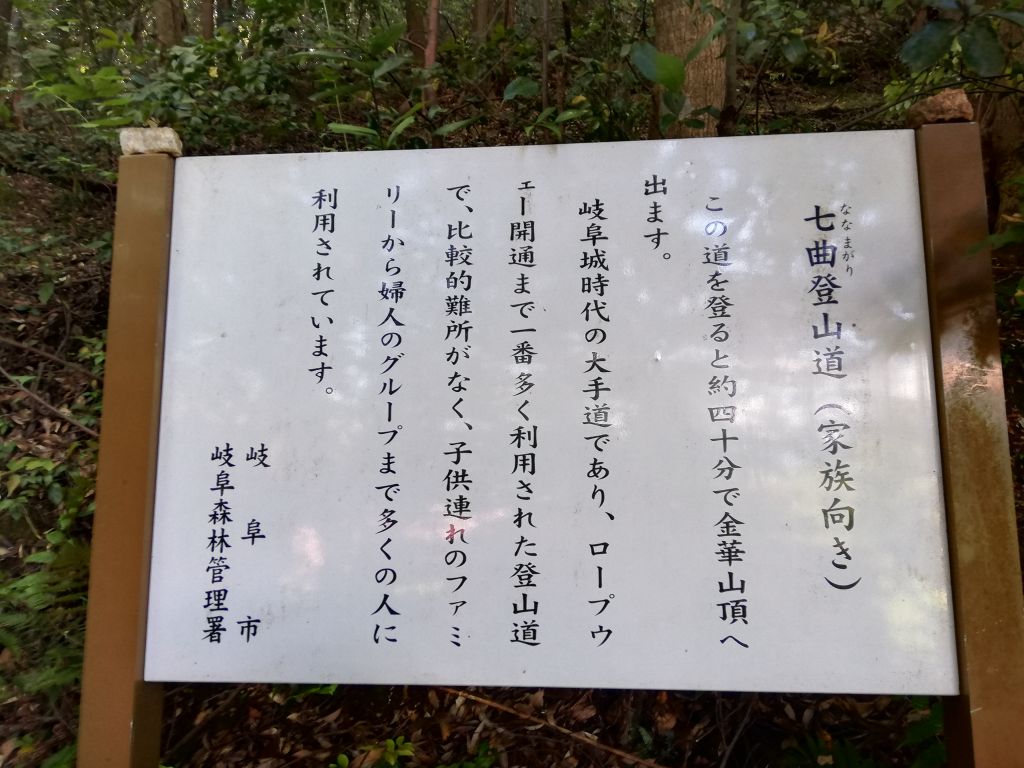 ななまがり
七曲登山道（家族向き）
この道を登ると約四十分で金華山頂へ
出ます。
岐阜城時代の大手道であり、ロープウ
ェー開通まで一番多く利用された登山道
で、比較的難所がなく、子供連れのファミ
リーから婦人のグループまで多くの人に
利用されています。
岐阜市
岐阜森林管理署